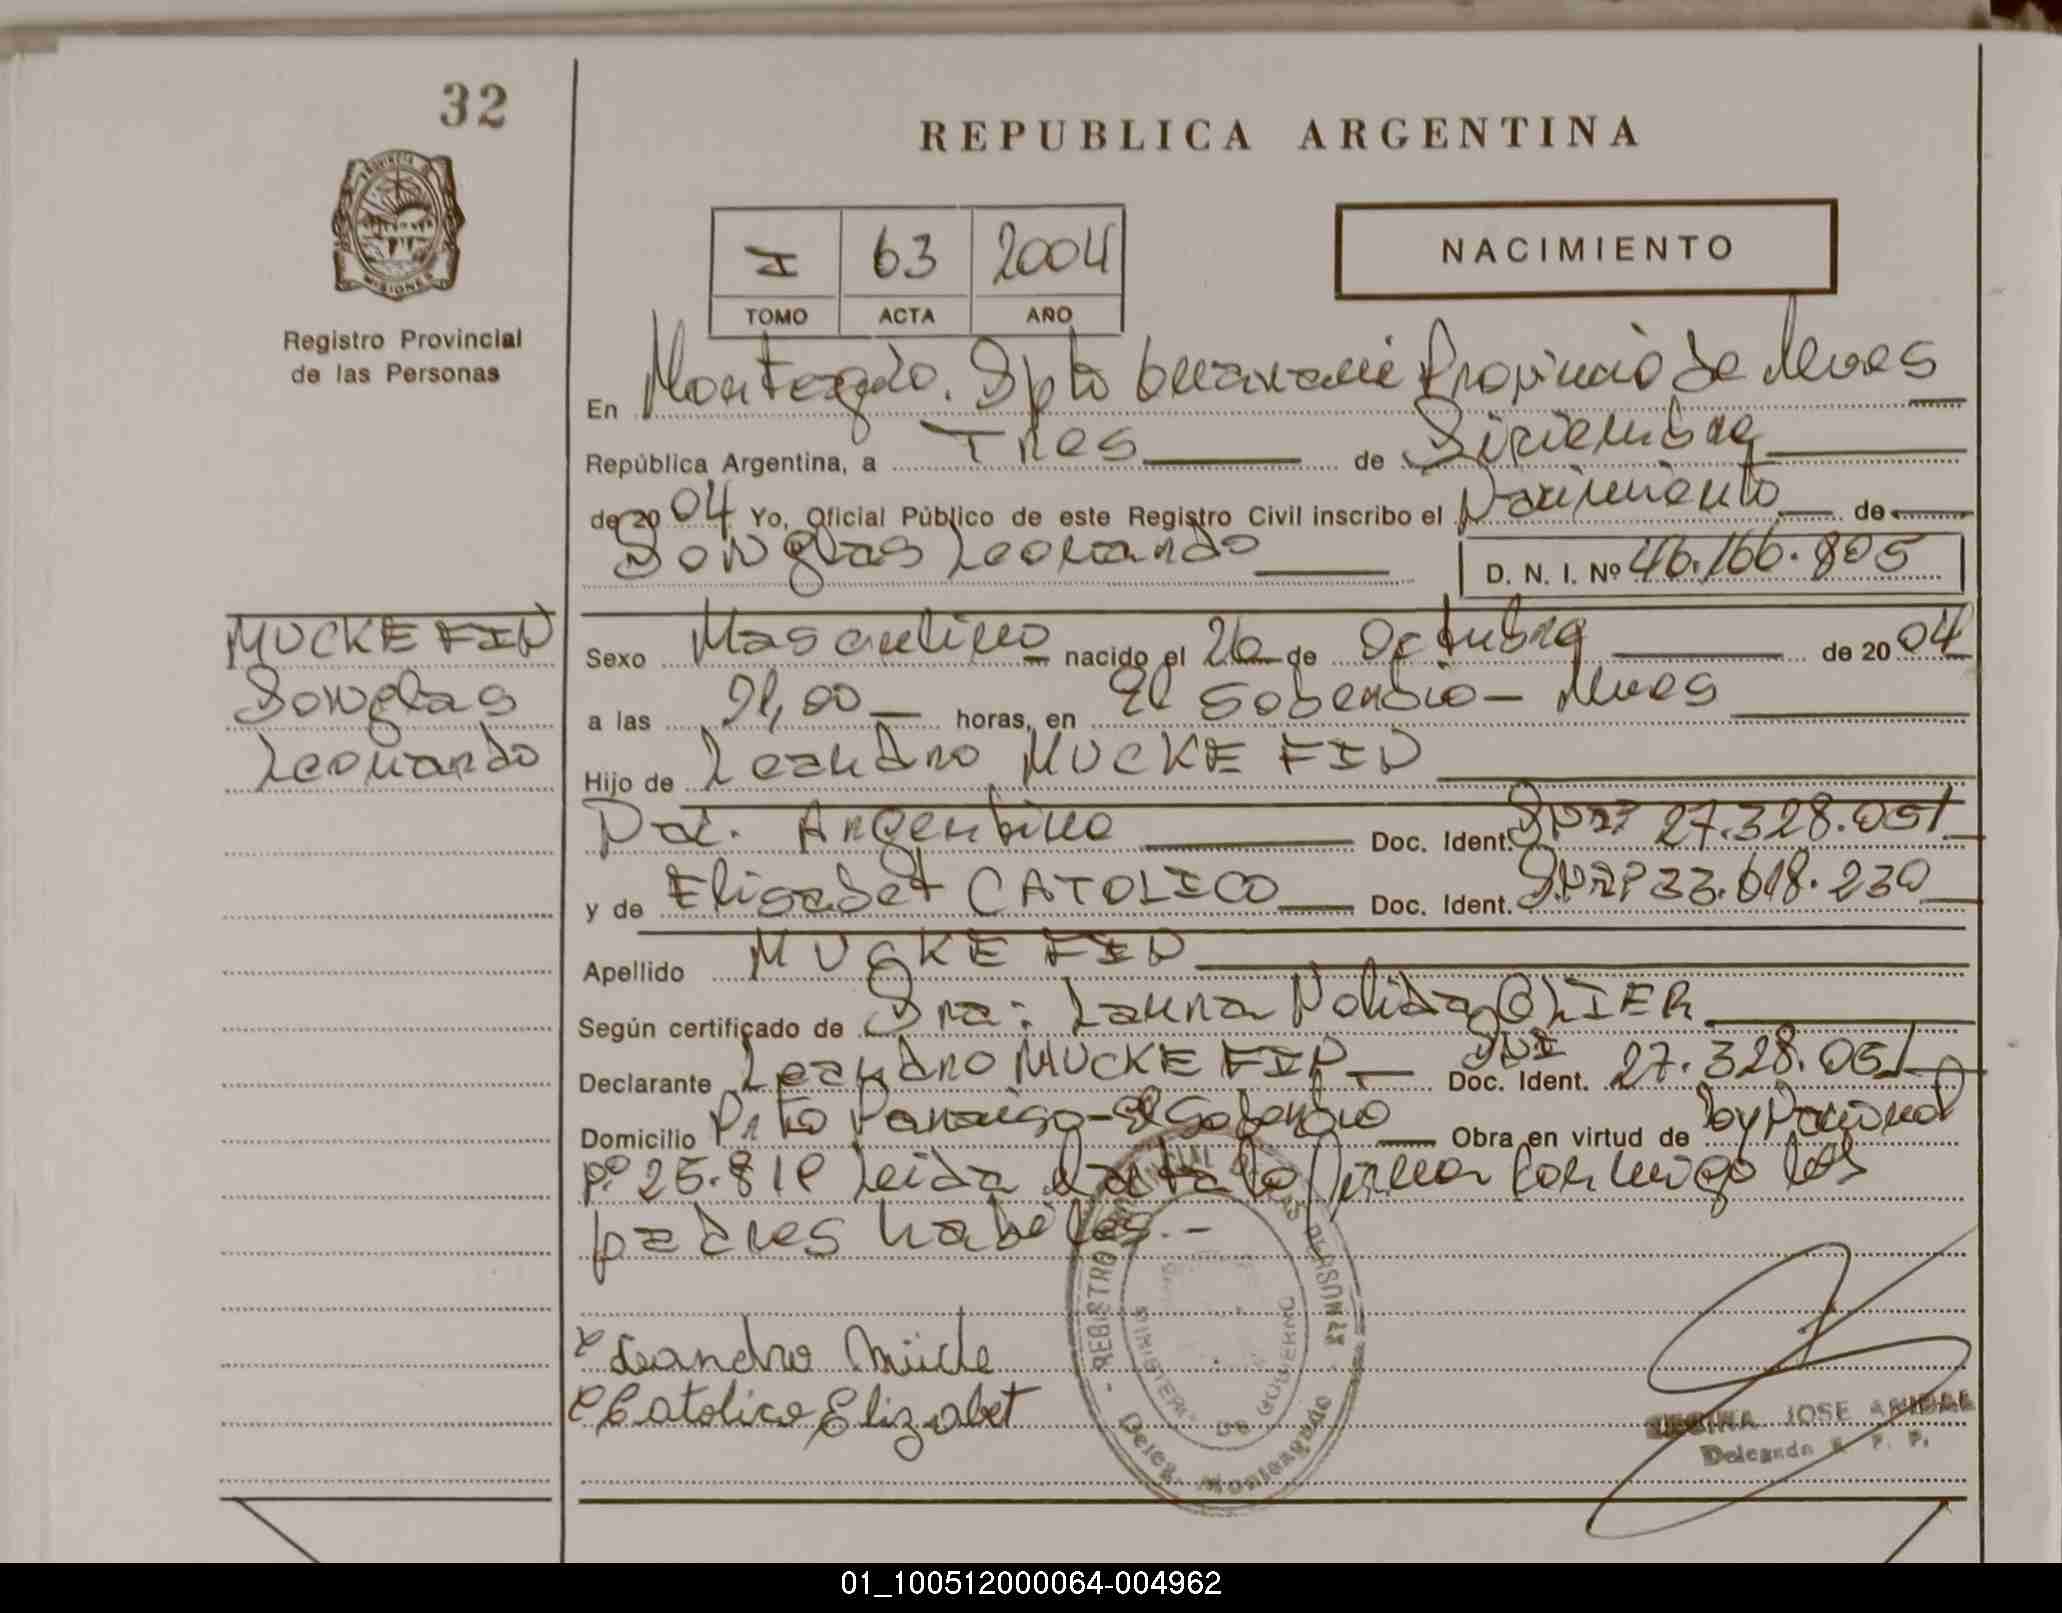 32
REPUBLICA ARGENTINA
PROVINCIA
MISIONES
Registro Provincial
de las Personas
I 63 2004
TOMO ACTA AÑO
NACIMIENTO
En Monteagdo. Dpto Guarani Provincia de Mnes
República Argentina, a Tres de Diciembre
de 2004 Yo, Oficial Público de este Registro Civil inscribo el Nacimiento de
Douglas Leonardo D. N. I. Nº 46.166.805
MUCKE FIN
Douglas
Leonardo
Sexo Masculino nacido el 26 de Octubre de 2004
a las 21,00 horas, en El Soberbio - Mnes
Hijo de Leandro MUCKE FIN
Nac. Argentino Doc. Ident. 27.328.051
y de Elisabet CATOLICO Doc. Ident. 33.618.230
Apellido MUCKE FIN
Según certificado de Dra: Laura Nolida OLIER
Declarante Leandro MUCKE FIN Doc. Ident. DNI 27.328.051
Domicilio Pto Paraiso - El Soberbio Obra en virtud de Ley Nacional
Nº 25.819 Leida el acta lo firman conmigo los
padres habiles.-
Leandro Mücke
Catolico Elizabet
REGISTRO PROVINCIAL DE LAS PERSONAS
MINISTERIO DE GOBIERNO
Deleg. Monteagudo
JOSE ANIBAL
Delegado R. P. P.
01_100512000064-004962